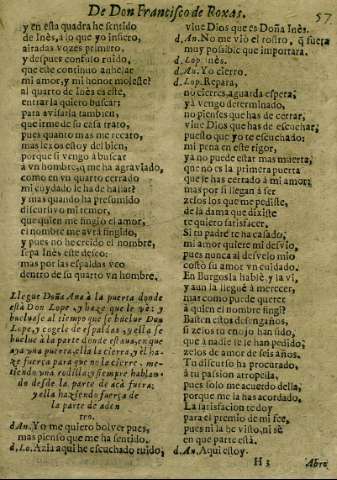 De Don Francisco de Roxas.
57
y en esta quadra he sentido
de Inès, a lo que yo infiero,
airadas vozes primero,
y despues confuso ruido,
que este continuo anhelar
mi amor, y mi honor moleste!
al quarto de Inès es este,
entrar la quiero buscar:
para avisarla tambien,
que irme de su casa trato,
pues quanto mas me recato,
mas lexos estoy del bien,
porque si vengo à buscar
a vn hombre, q me ha agraviado,
como en vn quarto cerrado
mi cuydado le ha de hallar?
y mas quando ha presumido
discursivo mi temor,
que quien me fingio el amor,
el nombre me avrà fingido,
y pues no he creido el nombre,
sepa Inès este deseo:
mas por las espaldas veo
dentro de su quarto vn hombre.
Llegue Doña Ana à la puerta donde
està Don Lope, y haze que le vè; y
buelvase al tiempo que se buelue Don
Lope, y cogele de espaldas, y ella se
buelue à la parte donde estaua, en que
aya vna puerta, ella la cierra, y èl ha-
ze fuerça para que no la cierre, me-
tiendo vna rodilla, y siempre hablan-
do desde la parte de acà fuera;
y ella haziendo fuerça de
la parte de aden
tro.
d. An. Yo me quiero bolver pues,
mas pienso que me ha sentido.
d. Lo. Azia aqui he escuchado ruido,
viue Dios que es Doña Inès.
d. An. No me viò el rostro, q fuera
muy posible que importara.
d. Lop. Inès.
d. An. Yo cierro.
d. Lop. Repara,
no cierres, aguarda, espera;
yà vengo determinado,
no pienses que has de cerrar,
viue Dios que has de escuchar,
puesto que yo te he escuchado:
mi pena en este rigor,
ya no puede estar mas muerta,
que no es la primera puerta
que se has cerrado à mi amor;
mas por si llegan à ser
zelos los que me pediste,
de la dama que dixiste
te quiero satisfacer.
Si tu padre te ha casado,
mi amor quiere mi desvio,
pues nunca al desvelo mio
costò su amor vn cuidado.
En Burgos la hablè, y la vi,
y aun la lleguè à merecer,
mas como puede querer
à quien el nombre fingì?
Basten estos desengaños,
si zelos tu enojo han sido,
que à nadie se le han pedido;
zelos de amor de seis años.
Tu discurso ha procurado,
à tu passion atropella,
pues solo me acuerdo della,
porque me la has acordado,
La satisfacion te doy
para el premio de mi fee,
pues ni la he visto, ni sè
en que parte està.
d. An. Aqui estoy.
H 3
Abro